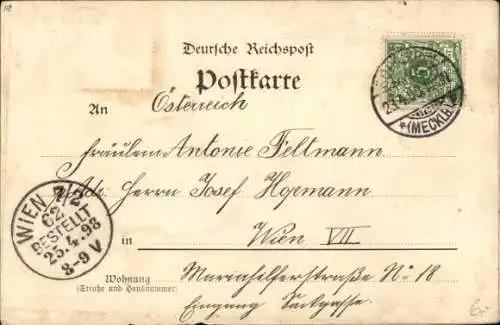 Deutsche Reichspost
Postkarte
An Österreich
Fräulein Antonie Feltmann
Adr. Herrn Josef Hopmann
in Wien VII
Wohnung Mariahilferstraße No 18
(Straße und Hausnummer)
Eingang Sackgasse.
WIEN 7/2
62.
BESTELLT
25.4.98
8-9 V
23.4.
*(MECKLB)